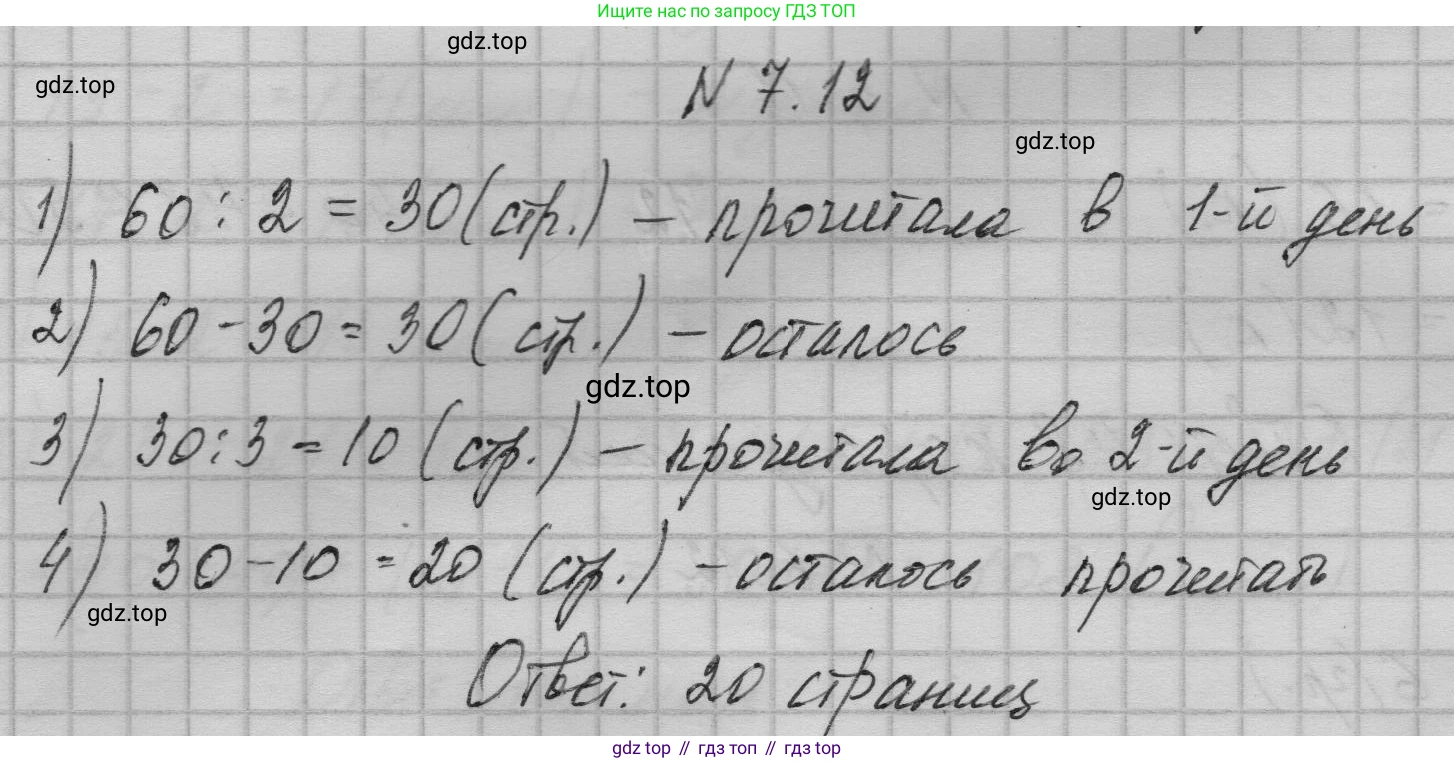 Ищите нас по запросу ГДЗ ТОП
gdz.top
gdz.top
N 7.12
gdz.top
1) 60 : 2 = 30 (стр.) – прочитала в 1-й день
2) 60 - 30 = 30 (стр.) – осталось
gdz.top
3) 30 : 3 = 10 (стр.) – прочитала во 2-й день
gdz.top
4) 30 - 10 = 20 (стр.) – осталось прочитать
gdz.top
Ответ: 20 страниц
gdz top // гдз топ // gdz top